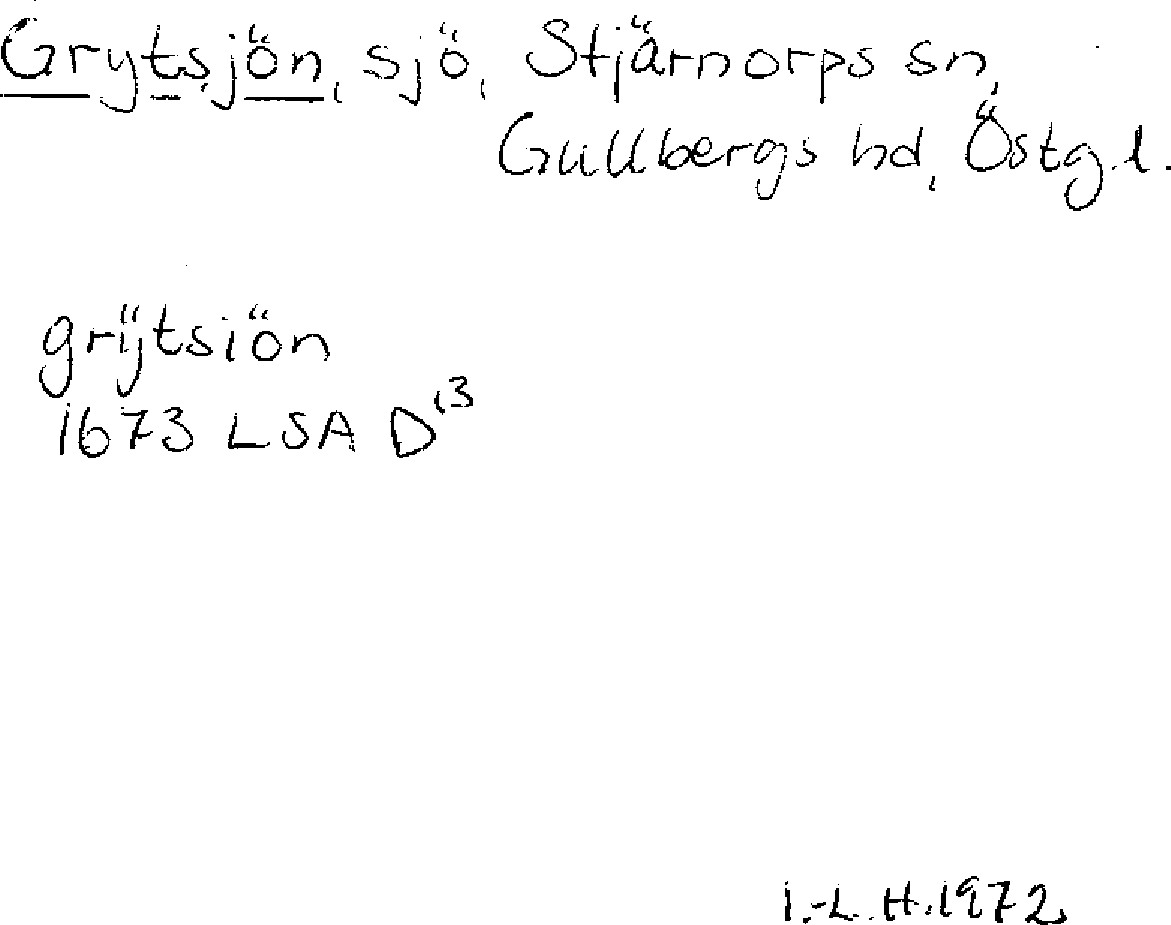 Grytsjön, sjö, Stjärnorps sn,
Gullbergs hd, Östg.l.
grÿtsiön
1673 LSA D 13
I.-L.H. 1972